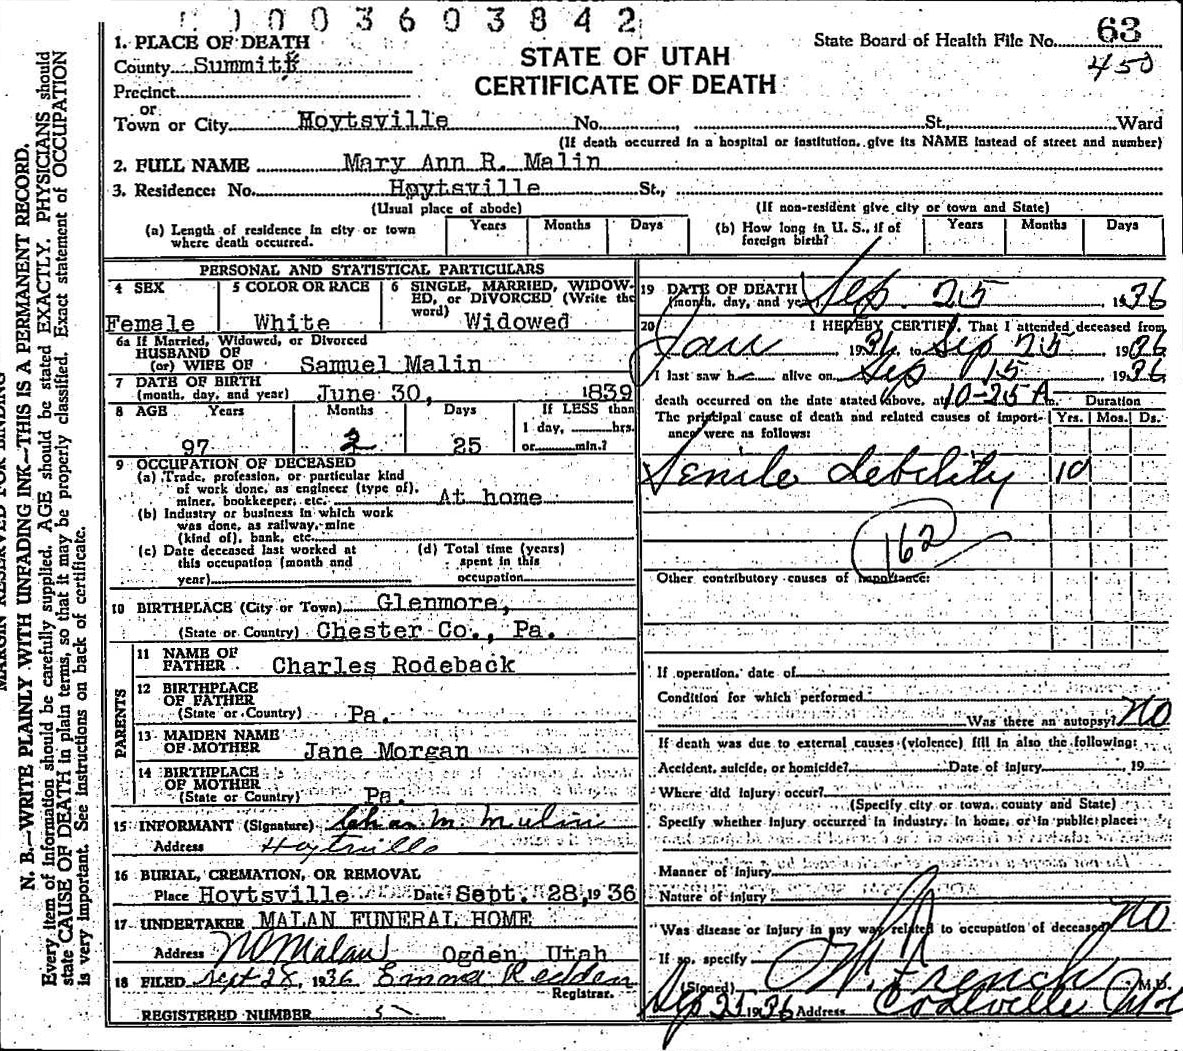 1003603842
63
450
STATE OF UTAH
CERTIFICATE OF DEATH
State Board of Health File No.
1. PLACE OF DEATH
County Summit
Precinct
or
Town or City Hoytsville No. St., Ward
(If death occurred in a hospital or institution, give its NAME instead of street and number)
2. FULL NAME Mary Ann R. Malin
3. Residence: No. Hoytsville St.,
(Usual place of abode) (If non-resident give city or town and State)
(a) Length of residence in city or town where death occurred. Years Months Days (b) How long in U. S., if of foreign birth? Years Months Days
PERSONAL AND STATISTICAL PARTICULARS
4 SEX 5 COLOR OR RACE 6 SINGLE, MARRIED, WIDOW-
ED, or DIVORCED (Write the
word)
Female White Widowed
6a If Married, Widowed, or Divorced
HUSBAND OF
(or) WIFE OF Samuel Malin
7 DATE OF BIRTH
(month, day, and year) June 30, 1839
8 AGE Years Months Days If LESS than
1 day, hrs.
97 2 25 or min.?
9 OCCUPATION OF DECEASED
(a) Trade, profession, or particular kind
of work done, as engineer (type of),
miner, bookkeeper, etc. At home
(b) Industry or business in which work
was done, as railway, mine
(kind of), bank, etc.
(c) Date deceased last worked at (d) Total time (years)
this occupation (month and spent in this
year) occupation
10 BIRTHPLACE (City or Town) Glenmore,
(State or Country) Chester Co., Pa.
PARENTS
11 NAME OF
FATHER Charles Rodeback
12 BIRTHPLACE
OF FATHER
(State or Country) Pa.
13 MAIDEN NAME
OF MOTHER Jane Morgan
14 BIRTHPLACE
OF MOTHER
(State or Country) Pa.
15 INFORMANT (Signature) Chas M. Malin
Address Hoytsville
16 BURIAL, CREMATION, OR REMOVAL
Place Hoytsville Date Sept. 28, 1936
17 UNDERTAKER MALAN FUNERAL HOME
Address Malan Ogden Utah
18 FILED Sept 28, 1936 Emma Redden
Registrar.
REGISTERED NUMBER 5
19 DATE OF DEATH
(month, day, and year) Sep. 25 1936
20 I HEREBY CERTIFY, That I attended deceased from
Jan 1936, to Sep 25 1936
I last saw h alive on Sep 15 1936
death occurred on the date stated above, at 10-25 A m. Duration
The principal cause of death and related causes of import-
ance were as follows: Yrs. Mos. Ds.
Senile debility 10
162
Other contributory causes of importance:
If operation, date of
Condition for which performed
Was there an autopsy? No
If death was due to external causes (violence) fill in also the following:
Accident, suicide, or homicide? Date of injury 19
Where did injury occur?
(Specify city or town, county and State)
Specify whether injury occurred in industry, in home, or in public place:
Manner of injury
Nature of injury
Was disease or injury in any way related to occupation of deceased? No
If so, specify
(Signed) French M.D.
Sep 25 1936 Address Coalville
MARGIN RESERVED FOR BINDING
N. B.—WRITE PLAINLY WITH UNFADING INK—THIS IS A PERMANENT RECORD.
Every item of information should be carefully supplied. AGE should be stated EXACTLY. PHYSICIANS should
state CAUSE OF DEATH in plain terms, so that it may be properly classified. Exact statement of OCCUPATION
is very important. See instructions on back of certificate.